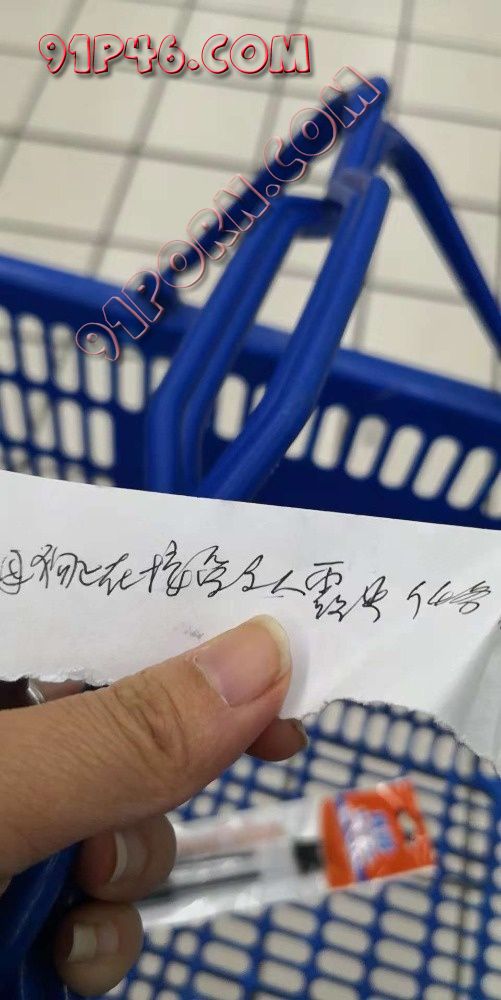 91P46.COM
91PORN.COM
母狗正在接受主人露出任务